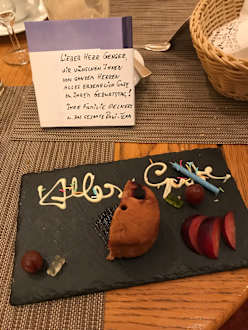 LIEBER HERR GENGER,
WIR WÜNSCHEN IHNEN
VON GANZEM HERZEN
ALLES ERDENKLICH GUTE
ZU IHREM GEBURTSTAG!
IHRE FAMILIE
U. DAS GESAMTE TEAM
Alles Gute